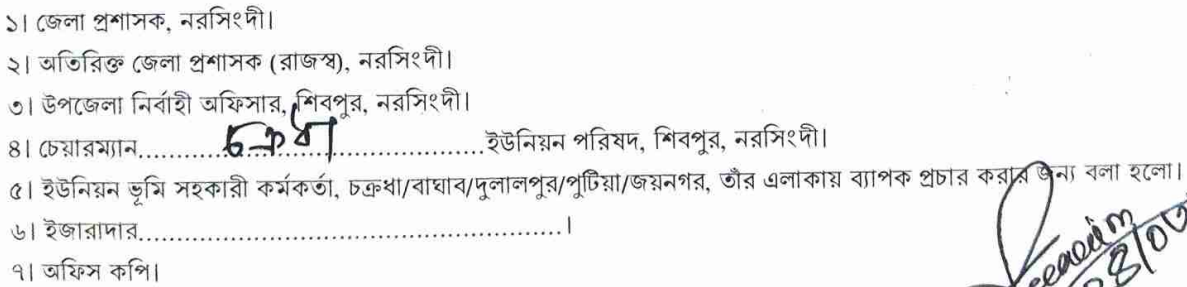 ১। জেলা প্রশাসক, নরসিংদী।
২। অতিরিক্ত জেলা প্রশাসক (রাজস্ব), নরসিংদী।
৩। উপজেলা নির্বাহী অফিসার, শিবপুর, নরসিংদী।
৪। চেয়ারম্যান..........চক্রধা..........ইউনিয়ন পরিষদ, শিবপুর, নরসিংদী।
৫। ইউনিয়ন ভূমি সহকারী কর্মকর্তা, চক্রধা/বাঘাব/দুলালপুর/পুটিয়া/জয়নগর, তাঁর এলাকায় ব্যাপক প্রচার করার জন্য বলা হলো।
৬। ইজারাদার............................................................।
৭। অফিস কপি।